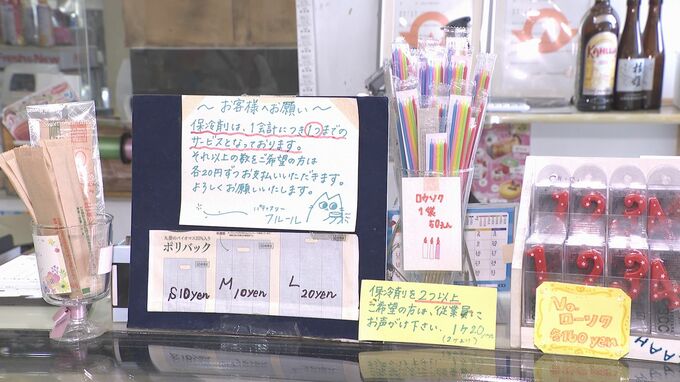 〜 お客様へお願い 〜
保冷剤は、1会計につき1つまでの
サービスとなっております。
それ以上の数をご希望の方は
各20円ずつお支払いいただきます。
よろしくお願いいたします。
パティスリー
フルール
ポリバック
S 10yen
M 10yen
L 20yen
ロウソク
1袋
50えん
保冷剤を2つ以上
ご希望の方は、従業員に
お声がけ下さい。1ケ20
No.
ローソク
各160yen
KAHLÚA
1 2 3 A
1 2 3 A